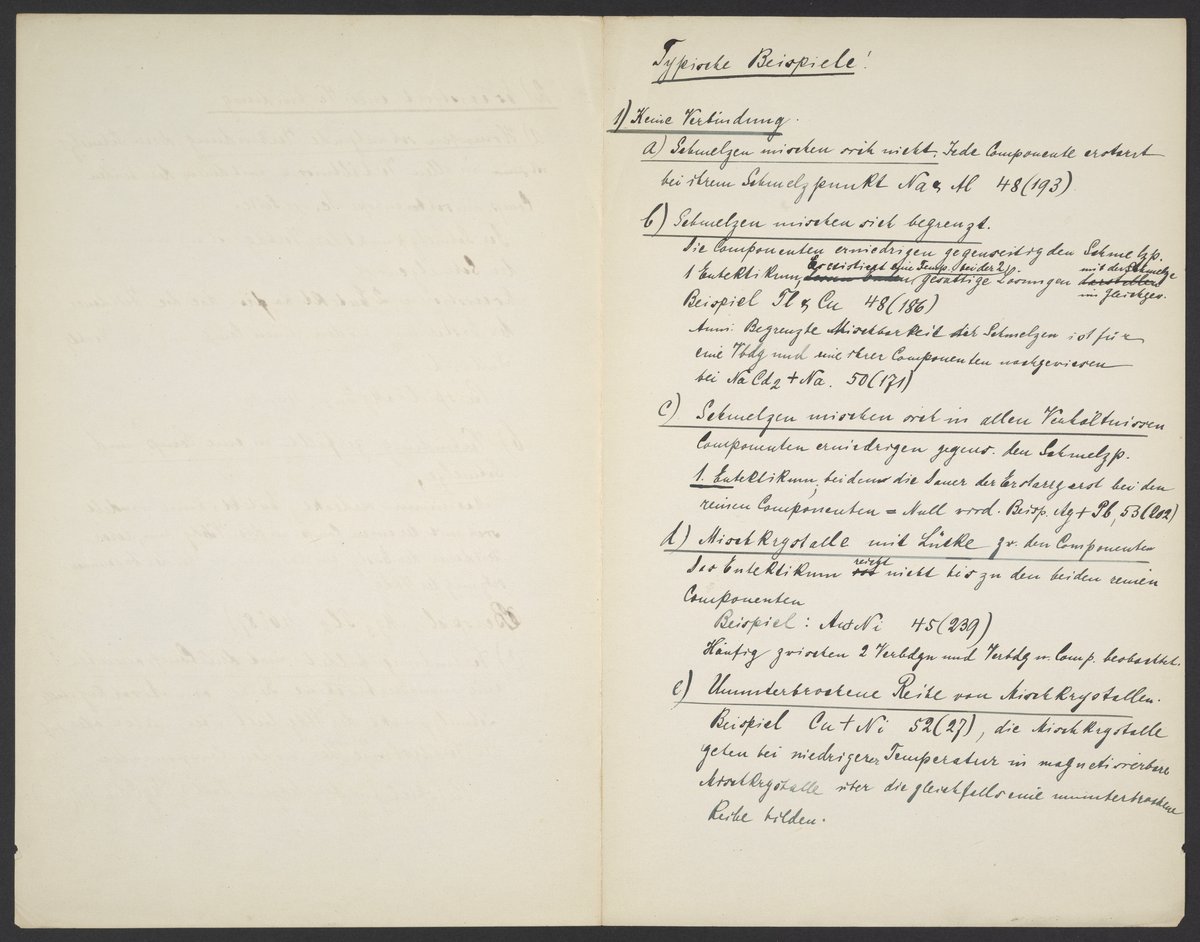 Typische Beispiele!
1) Keine Verbindung.
a) Schmelzen mischen sich nicht. Jede Componente erstarrt
bei ihrem Schmelzpunkt Na & Al 48(193)
b) Schmelzen mischen sich begrenzt.
Die Componenten erniedrigen gegenseitig den Schmelzp.
1 Entektikum, Es existiert eine Temp. bei der 2 gesättigte Lösungen mit der Schmelze
im Gleichgew.
Beispiel Tl & Cu 48(186)
Anm. Begrenzte Mischbarkeit der Schmelzen ist für
eine Vbdg und eine ihrer Componenten nachgewiesen
bei NaCd2 + Na. 50(171)
c) Schmelzen mischen sich in allen Verhältnissen
Componenten erniedrigen gegens. den Schmelzp.
1. Entektikum, bei dem die Dauer der Erstarrg erst bei den
reinen Componenten = Null wird. Beisp. Ag + Pb, 53(202)
d) Mischkrystalle mit Lücke zw. den Componenten
Das Entektikum reicht nicht bis zu den beiden reinen
Componenten
Beispiel: Au + Ni 45(239)
Häufig zwischen 2 Verbdgn und Verbdg u. Comp. beobachtet.
e) Ununterbrochene Reihe von Mischkrystallen.
Beispiel Cu + Ni 52(27), die Mischkrystalle
gehen bei niedrigerer Temperatur in magnetisierbare
Mischkrystalle über die gleichfalls eine ununterbrochene
Reihe bilden.